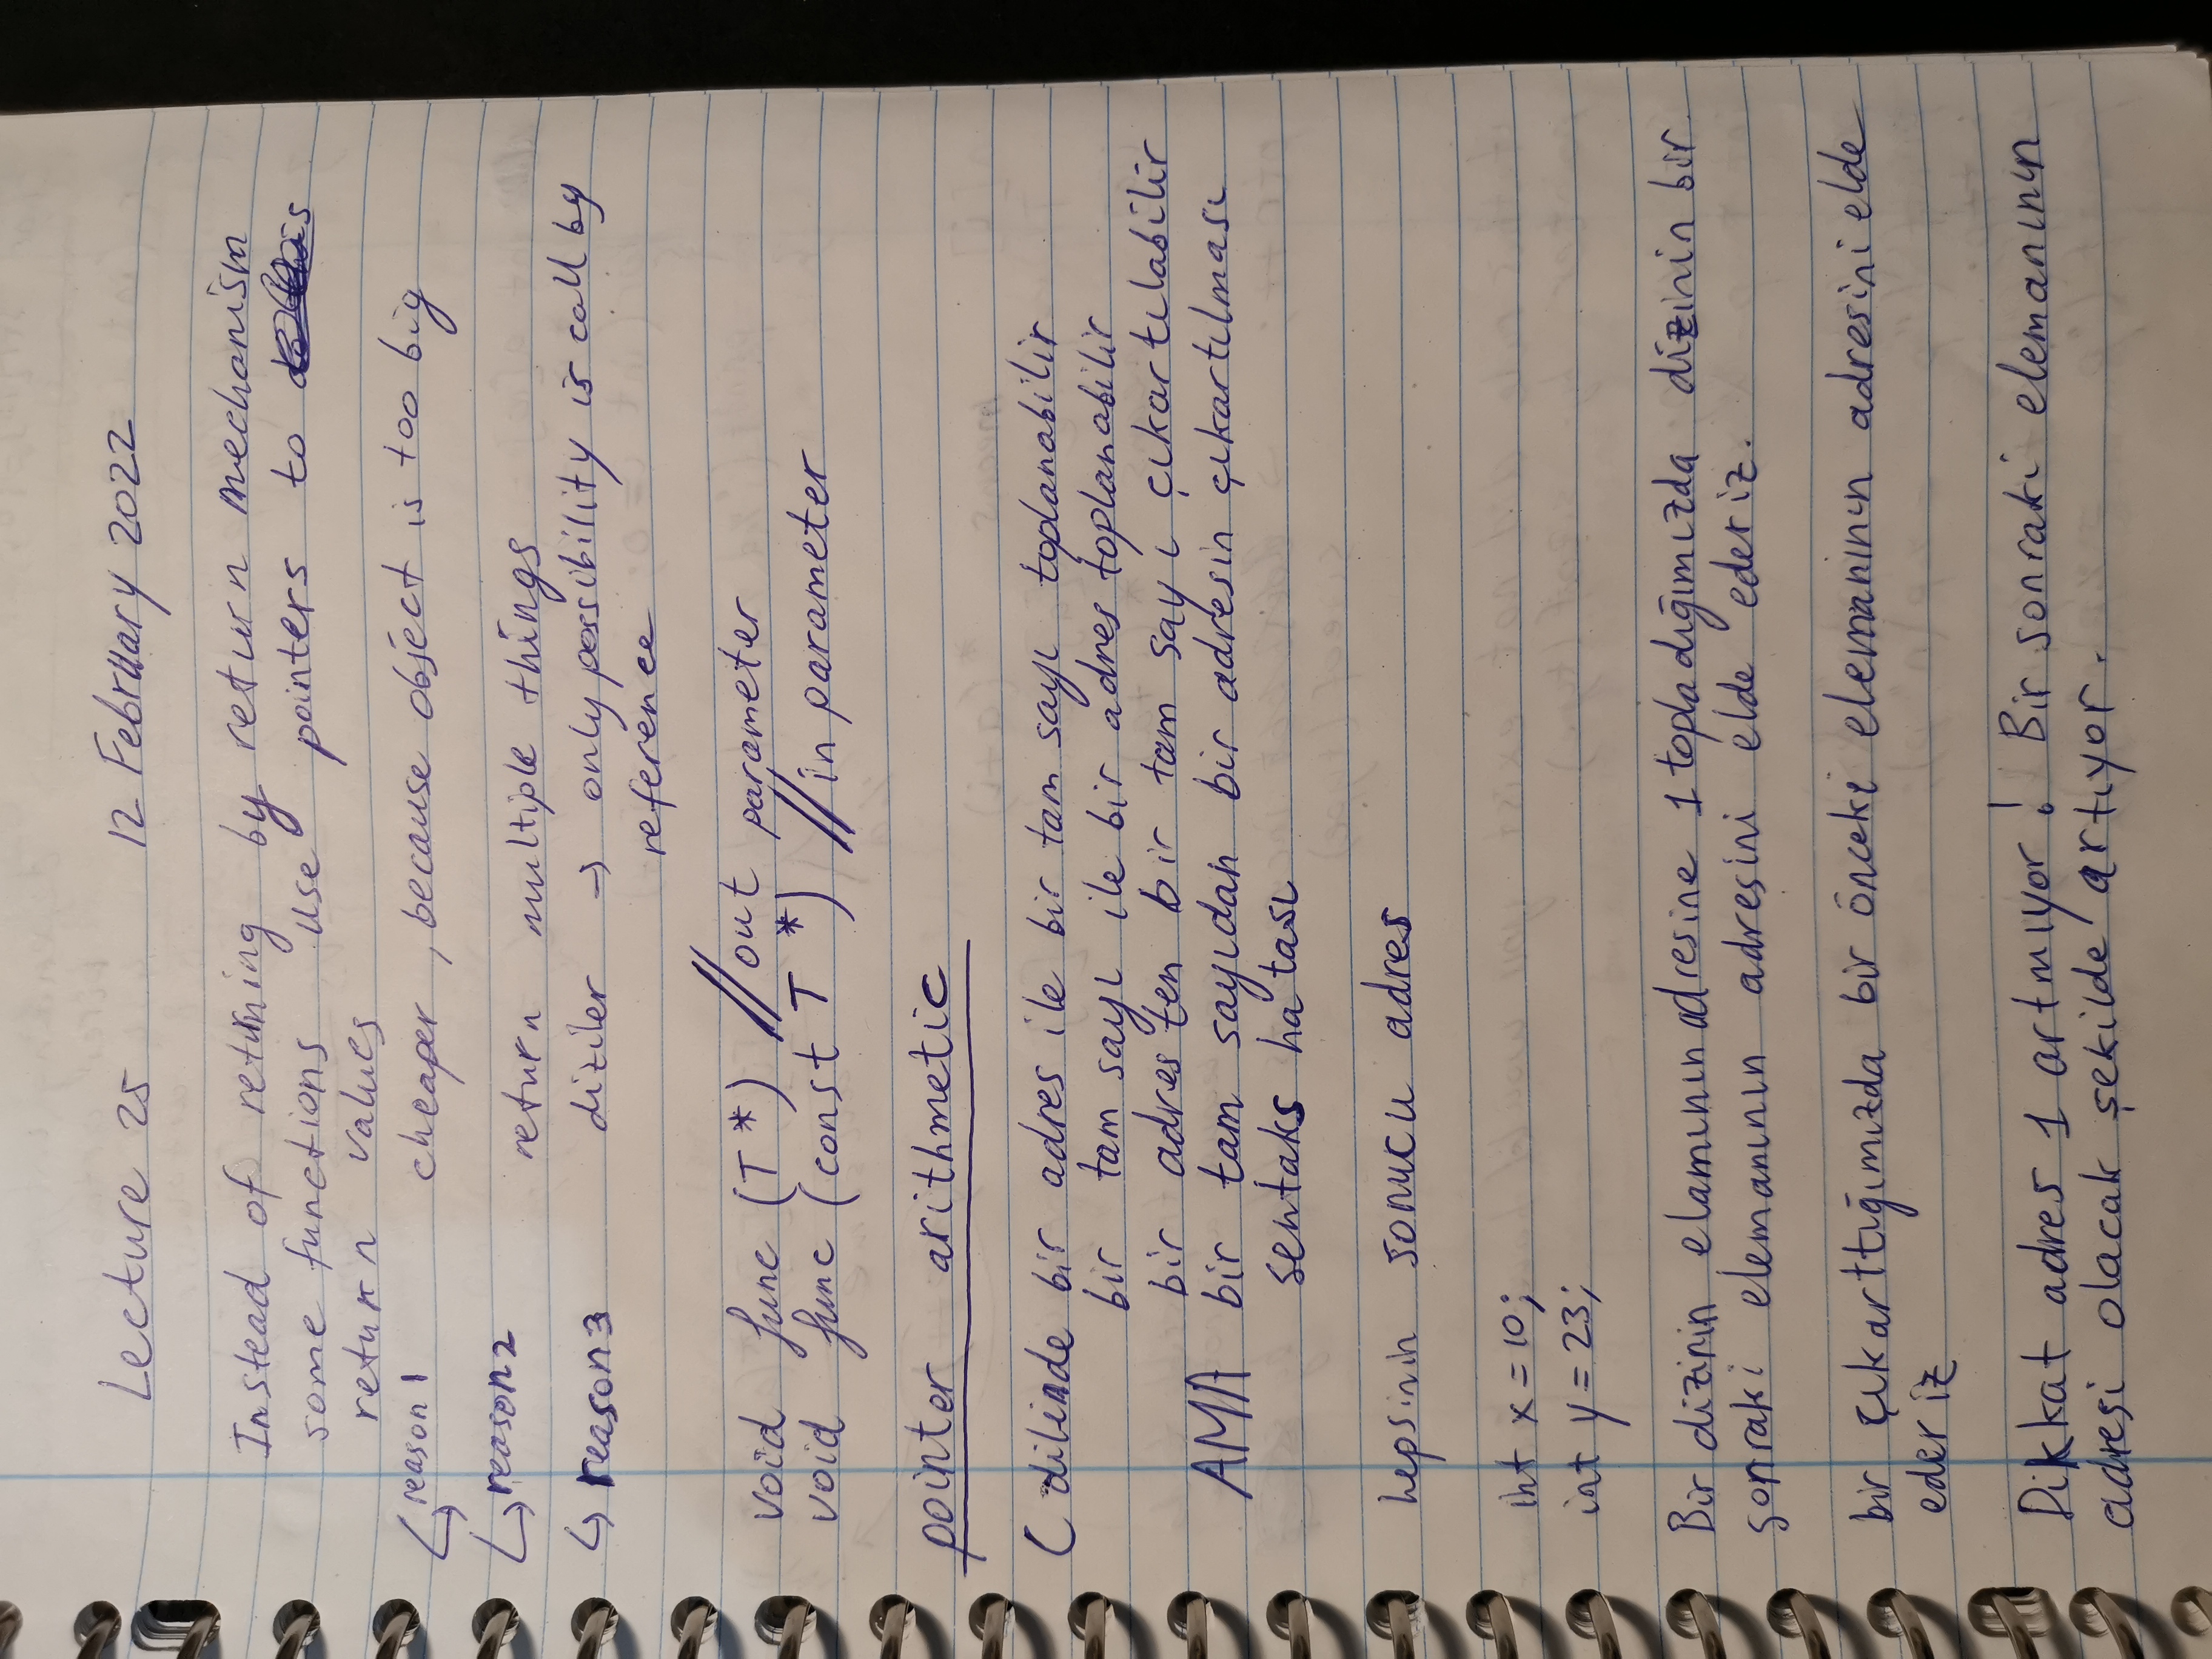 Lecture 25 12 February 2022
Instead of returning by return mechanism
some functions use pointers to
return values
reason 1 cheaper, because object is too big
reason 2 return multiple things
reason 3 diziler → only possibility is call by
reference
void func (T *) // out parameter
void func (const T *) // in parameter
pointer arithmetic
C dilinde bir adres ile bir tam sayı toplanabilir
bir tam sayı ile bir adres toplanabilir
bir adres ten bir tam sayı çıkartılabilir
AMA bir tam sayıdan bir adresin çıkartılması
sentaks hatası
hepsinin sonucu adres
int x = 10;
int y = 23;
Bir dizinin elamının adresine 1 topladığımızda dizinin bir
sonraki elemanının adresini elde ederiz.
bir çıkarttığımızda bir önceki elemanının adresini elde
ederiz
Dikkat adres 1 artmıyor! Bir sonraki elemanının
adresi olacak şekilde artıyor.